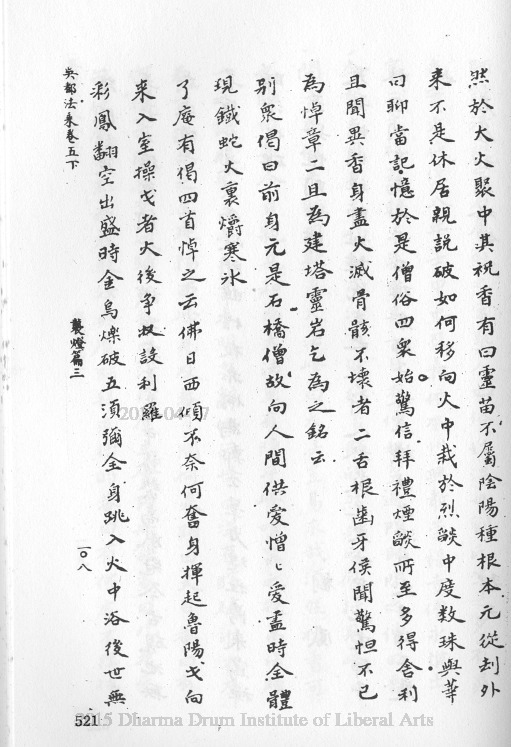 然於大火聚中其祝香有曰靈苗不屬陰陽種根本元從刦外
来不是休居親説破如何移向火中栽於烈燄中度数珠與華
曰聊當記憶於是僧俗四衆始驚信拜禮煙燄所至多得舍利
且聞異香身盡火滅骨骸不壞者二舌根齒牙侯聞驚怛不已
為悼章二且為建塔靈岩乞為之銘云
別衆偈曰前身元是石橋僧故向人間供愛憎〻愛盡時全體
現鐵蛇火裏嚼寒冰
了庵有偈四首悼之云佛日西傾不奈何奮身揮起魯陽戈向
来入室操戈者火後争收設利羅
彩鳳翻空出盛時金烏爍破五須彌全身跳入火中浴後世無
吳都法乘卷五下
襲燈篇三
一〇八
521
2015 Dharma Drum Institute of Liberal Arts